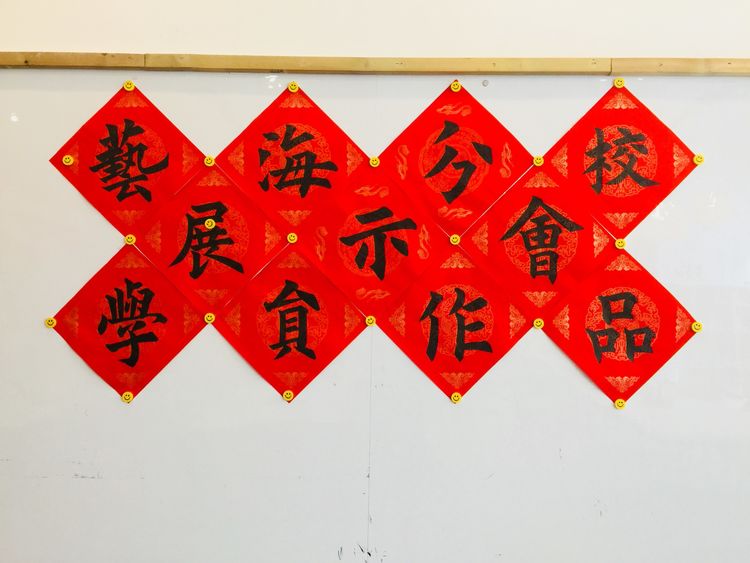 藝海分校
展示會
學員作品